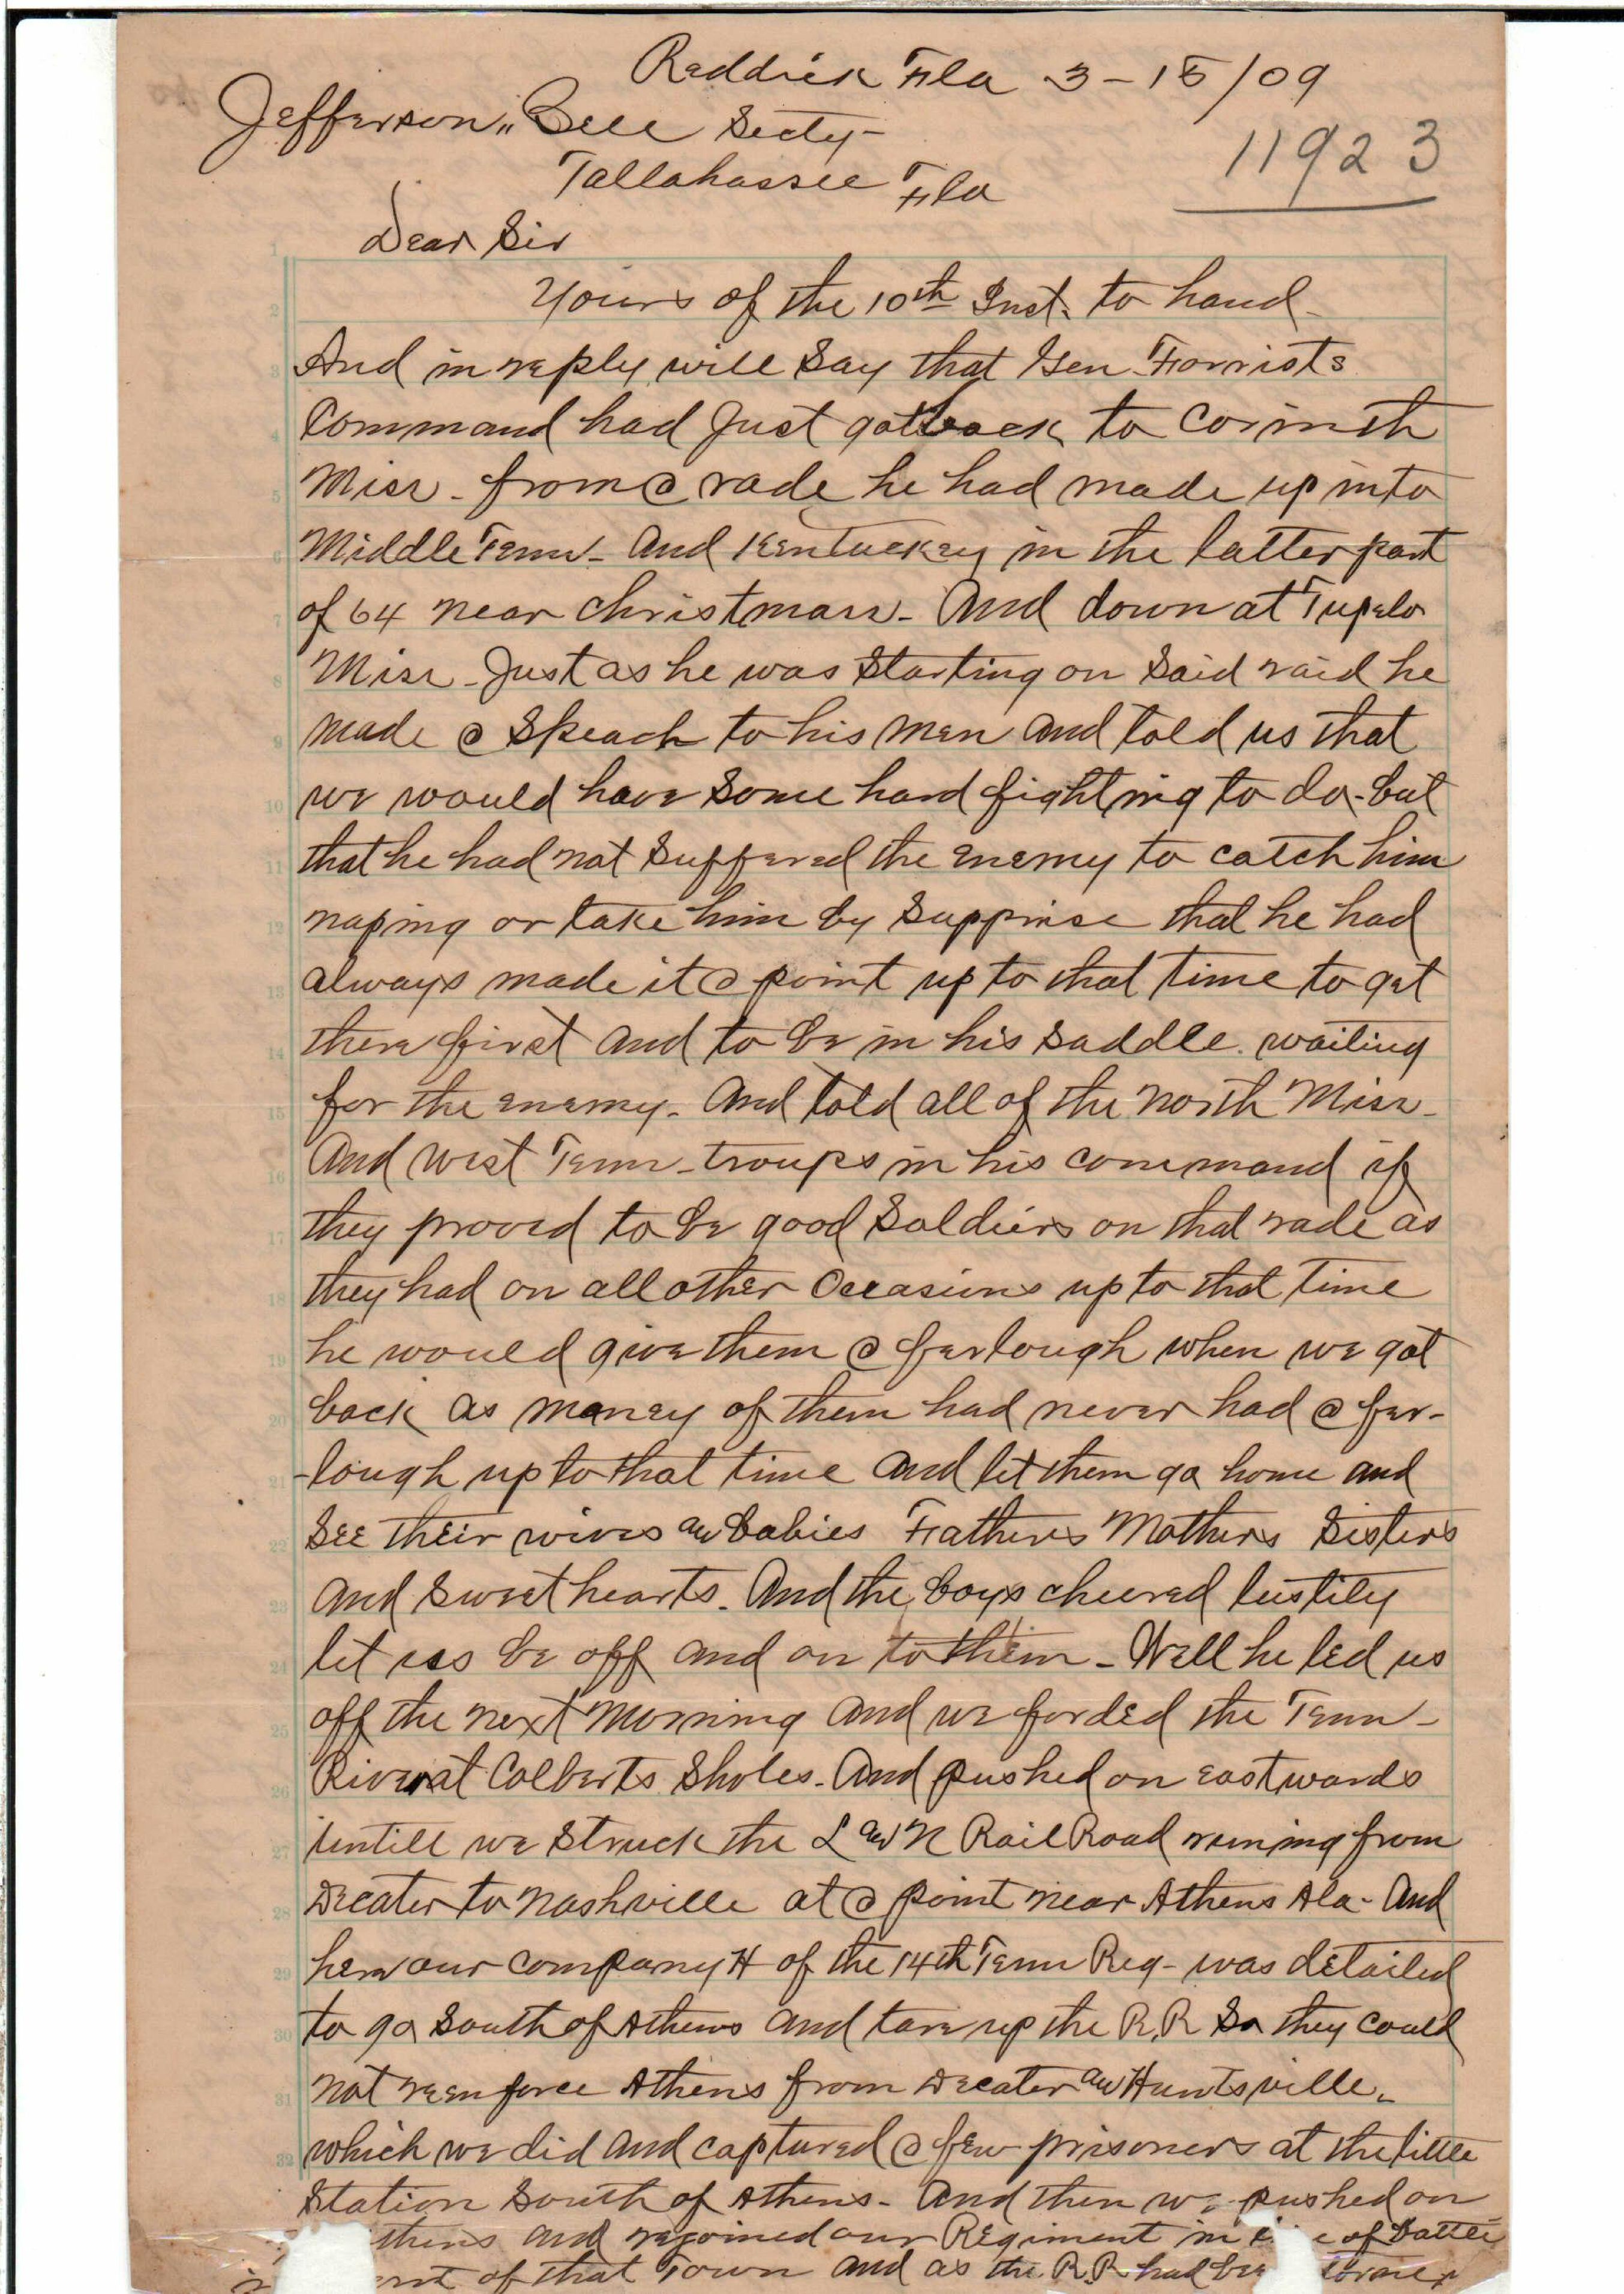 Reddick Fla 3-15/09
Jefferson,, Bell Secty-
11923
Tallahassee Fla
Dear Sir
Yours of the 10th Inst. to hand-
And in reply will Say that Gen Forrists
Command had Just got back to Corinth
Miss- from a rade he had made up into
Middle Tenn- And Kentuckey in the latter part
of 64 near christmass- And down at Tupelo
Miss- Just as he was Starting on Said raid he
made a Speach to his men and told us that
we would have Some hard fighting to do- but
that he had not Suffered the enemy to catch him
naping or take him by Supprise that he had
always made it a point up to that time to get
there first and to be in his saddle. waiting
for the enemy- And told all of the north Miss-
And west Tenn- troups in his command if
they proved to be good Soldiers on that rade as
they had on all other Occasions up to that time
he would give them a ferlough when we got
back as maney of them had never had a fer-
-lough up to that time and let them go home and
See their wives aw babies Fathers Mothers Sisters
and Sweethearts. And the boys cheered lustily
let us be off and on to them- Well he led us
off the next morning and we forded the Tenn-
River at Colberts Sholes- And pushed on eastwards
untill we Struck the L aw N Rail Road runing from
Decater to nashville at a point near Athens Ala- And
here our company H of the 14th Tenn Reg- was detailed
to go South of Athens and tare up the R.R So they could
not reenforce Athens from Decater aw Huntsville-
which we did and captured a few prisoners at the little
Station South of Athens- And then we pushed on
and rejoined our Regiment in of battle
of that Town and as the R.R had